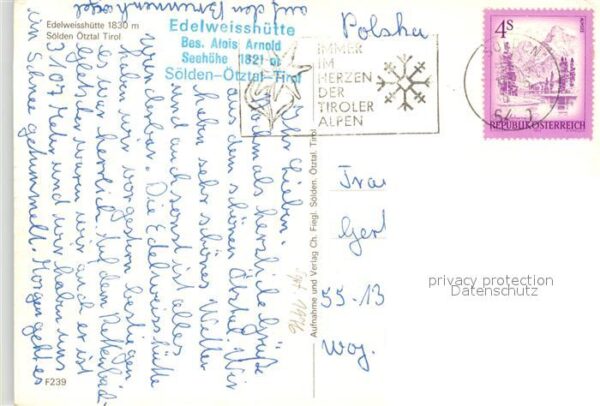 Edelweisshütte 1830 m
Sölden Ötztal Tirol
Edelweisshütte
Bes. Alois Arnold
Seehöhe 1821 m
Sölden-Ötztal-Tirol
IMMER
IM
HERZEN
DER
TIROLER
ALPEN
4S
REPUBLIK ÖSTERREICH
Polska
Ihr Lieben.
Nochmals herzliche Grüße
aus dem schönen Ötztal. Wir
haben sehr schönes Wetter
und auch sonst ist alles
wunderbar. Die Edelweisshütte
haben wir vorgestern bestiegen
es war herrlich. Auf dem Rettenbach-
gletscher waren wir auch er ist
3107 Meter und wir haben uns
im Schnee getummelt. Morgen geht es
auf den Brunnenkogel
Sept 1976
Aufnahme und Verlag Ch. Fiegl, Sölden, Ötztal, Tirol
55-13
Woj.
F239
privacy protection
Datenschutz